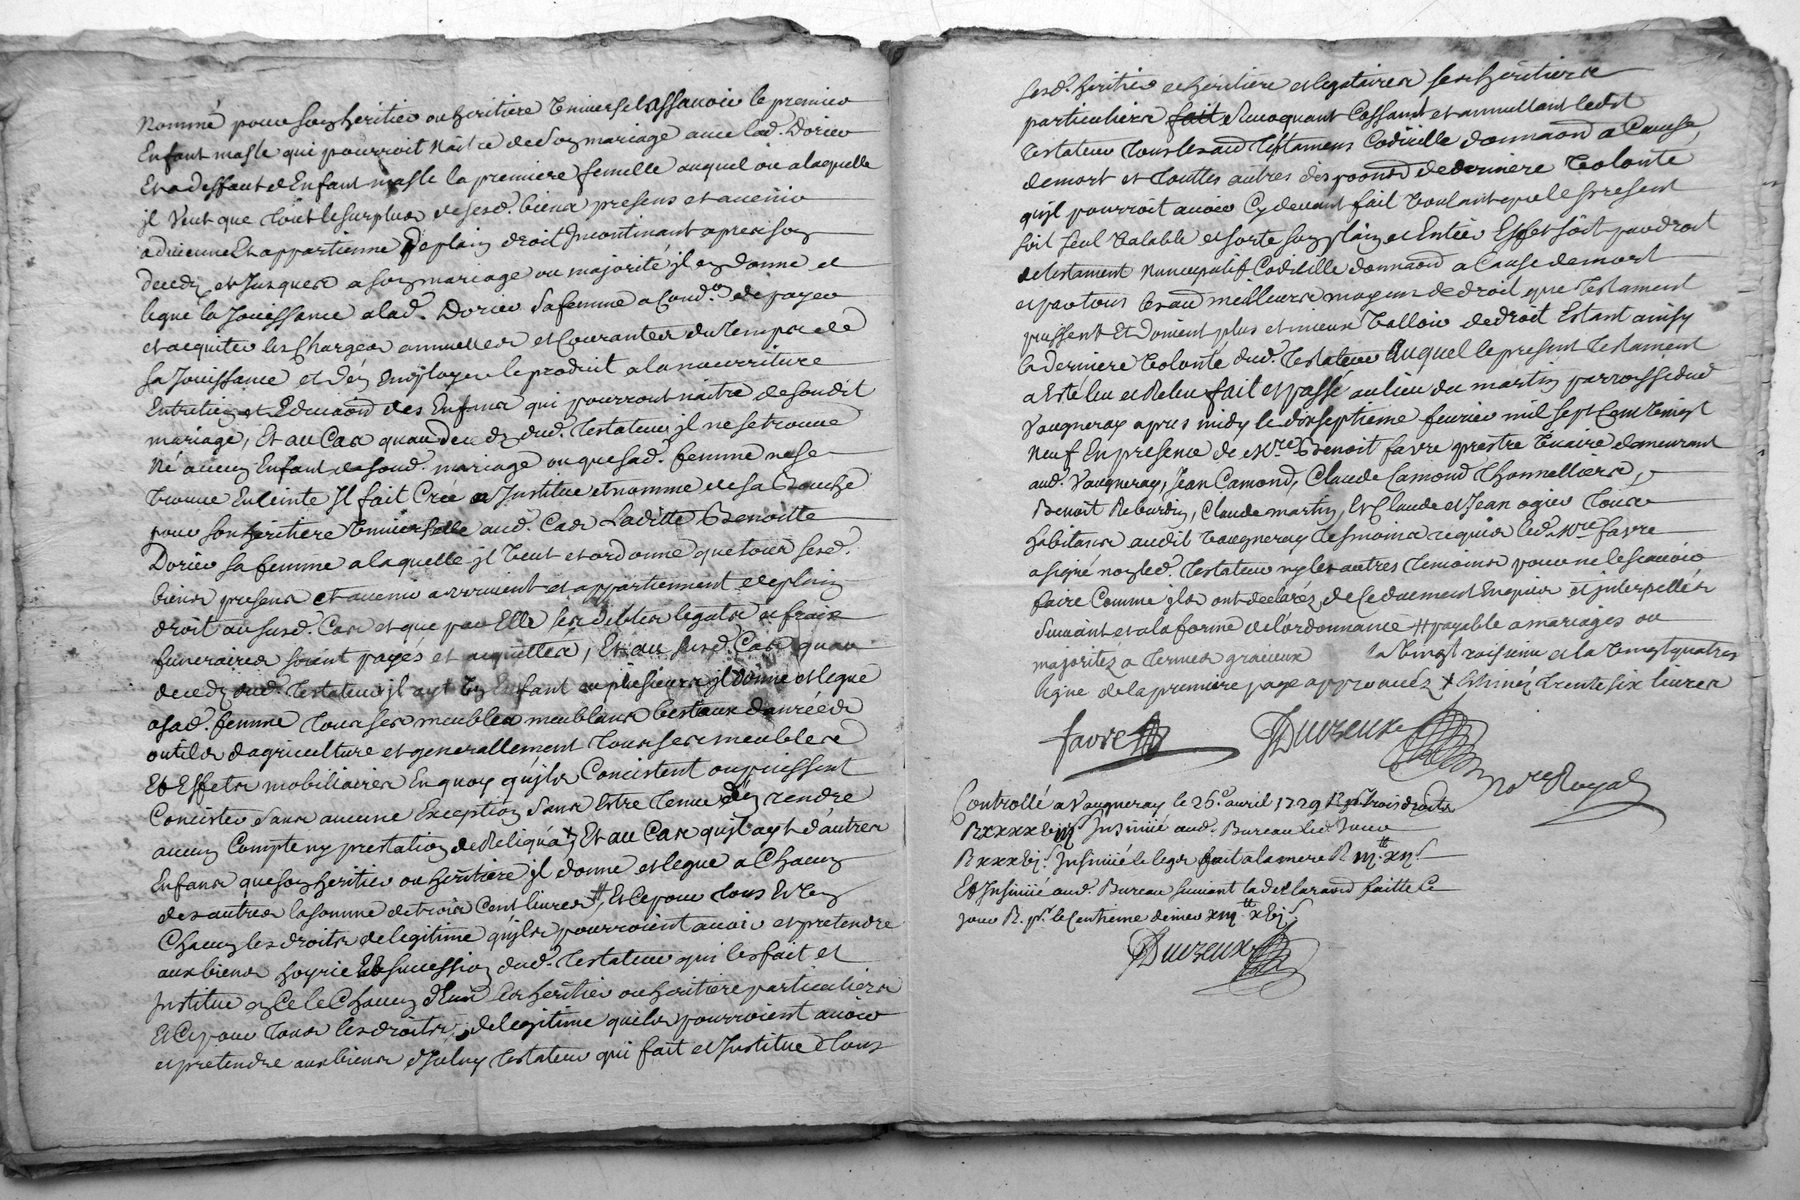 Nommé pour son heritier ou heritiere Universel assauoir le premier
Enfant masle qui pourroit naitre de son mariage auec lad. Dorier
Et a deffaut d'Enfant masle la premiere femelle auquel ou a laquelle
jl Veut que tout le surplus de sesd. biens presens et auenir
aduienne Et appartienne de plain droit Incontinant apres son
deced et Jusques a son mariage ou majorité jl en donne et
legue la Jouissance a lad. Dorier sa femme a Cond.on de payer
et acquiter les Charges annuelles et Courantes du temps de
sa Jouissance et d'en Employer le produit a la nourriture
Entretien et Educaon des Enfans qui pourront naitre de son dit
mariage, Et au Cas quau deced dud. Testateur jl ne se trouue
Né aucun Enfant de sond. mariage ou que sad. femme ne se
trouue Enceinte Jl fait Crée Institue et nomme de sa Bouche
pour son heritiere Vniuerselle aud. Cas Laditte Benoitte
Dorier sa femme a laquelle jl Veut et ordonne que tous sesd.
biens presens et auenir auiennent et appartiennent de plain
droit au susd. Cas et que par Elle ses debtes legats et frais
funeraires soient payes et acquittes, Et au susd. Cas quau
deced dud. Testateur jl ayt Un Enfant ou plusieurs jl donne et legue
a sad. femme tous ses meubles meublans bestiaux danrées
outils dagriculture et generallement tous ses meubles
Et Effets mobiliaires En quoy qu'jls Concistent ou puissent
Concister sans aucune Exception sans Estre tenue d'en rendre
aucun Compte ny prestation de Reliqua Et au Cas qu'jl ayt d'autres
Enfans que son heritier ou heritiere jl donne et legue a Chacun
des autres la somme de trois Cent liures #, Et Ce pour tous Et Un
Chacun les droits de legitime qu'jls pourroient auoir et pretendre
aux biens hoyrie Et succession dud. Testateur qui les fait et
Institue en Ce le Chacun d'Eux ses heritier ou heritiere particuliers
Et Ce pour tous les droits de legitime quils pourroient auoir
et pretendre aux biens d'Iceluy Testateur qui fait et Institue tous
sesd. heritier et heritiere et legataires ses heritiers
particuliers fait Reuoquant Cassant et annullant ledit
Testateur tous les au Testamens Codicille donnaon a Cause
de mort et touttes autres disposons de derniere Volonté
qu'jl pourroit auoir Cy deuant fait Voulant que le present
soit seul Valable et sorte son plain et Entier Effet soit par droit
de testament Nuncupatif Codicille donnaon a Cause de mort
et par tous les au meilleurs moyens de droit que Testament
puissent Et doiuent plus et mieux Valloir de droit Estant ainsy
la derniere Volonté dud. Testateur Auquel le present Testament
a Esté leu et Releu fait et passé au lieu du martin parroisse dud
Vaugneray apres midy le dixseptieme feurier mil sept Cent Vingt
Neuf En presence de Mre Benoit favre prestre Vicaire demeurant
aud. Vaugneray, Jean Camond, Claude Camond thonnelliers,
Benoit Rebourdin, Claude martin, Et Claude et Jean ogier tous
habitans audit Vaugneray tesmoins requis led. Mre favre
a signé non led. Testateur ny les autres temoins pour ne le scauoir
faire Comme jls ont declarés de Ce duement Enquis et jnterpellés
Suiuant et a la forme de l'ordonnance # payable a mariages ou
majoritez a termes gracieux la Vingt troisieme et la Vingt quatres
ligne de la premiere page approuués X Estimés trente six liures
favre Duvzeux
Nore Royal
Controllé a Vaugneray le 26e. auril 1729
Insinué aud. Bureau led. Jour
Insinué le legs fait a la mere R
Et Insinué aud. Bureau suiuant la declaraon faitte Ce
jour R. pr. le Centieme denier
Duvzeux